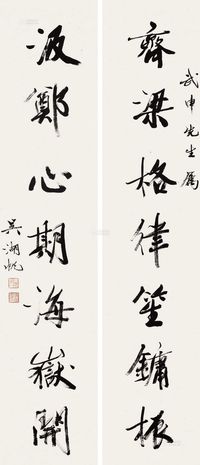 齊梁格律笙鏞振
武申先生屬
汲鄭心期海嶽開
吳湖帆